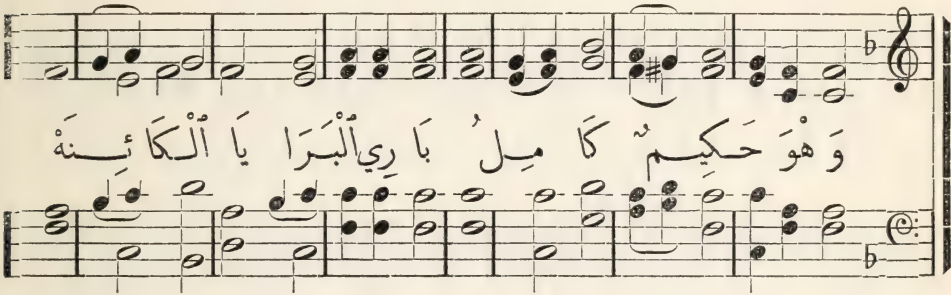 وَ هْوَ حَكِيمٌ كَا مِلُ بَا رِي ٱلْبَرَا يَا ٱلْكَا ئِنَهْ